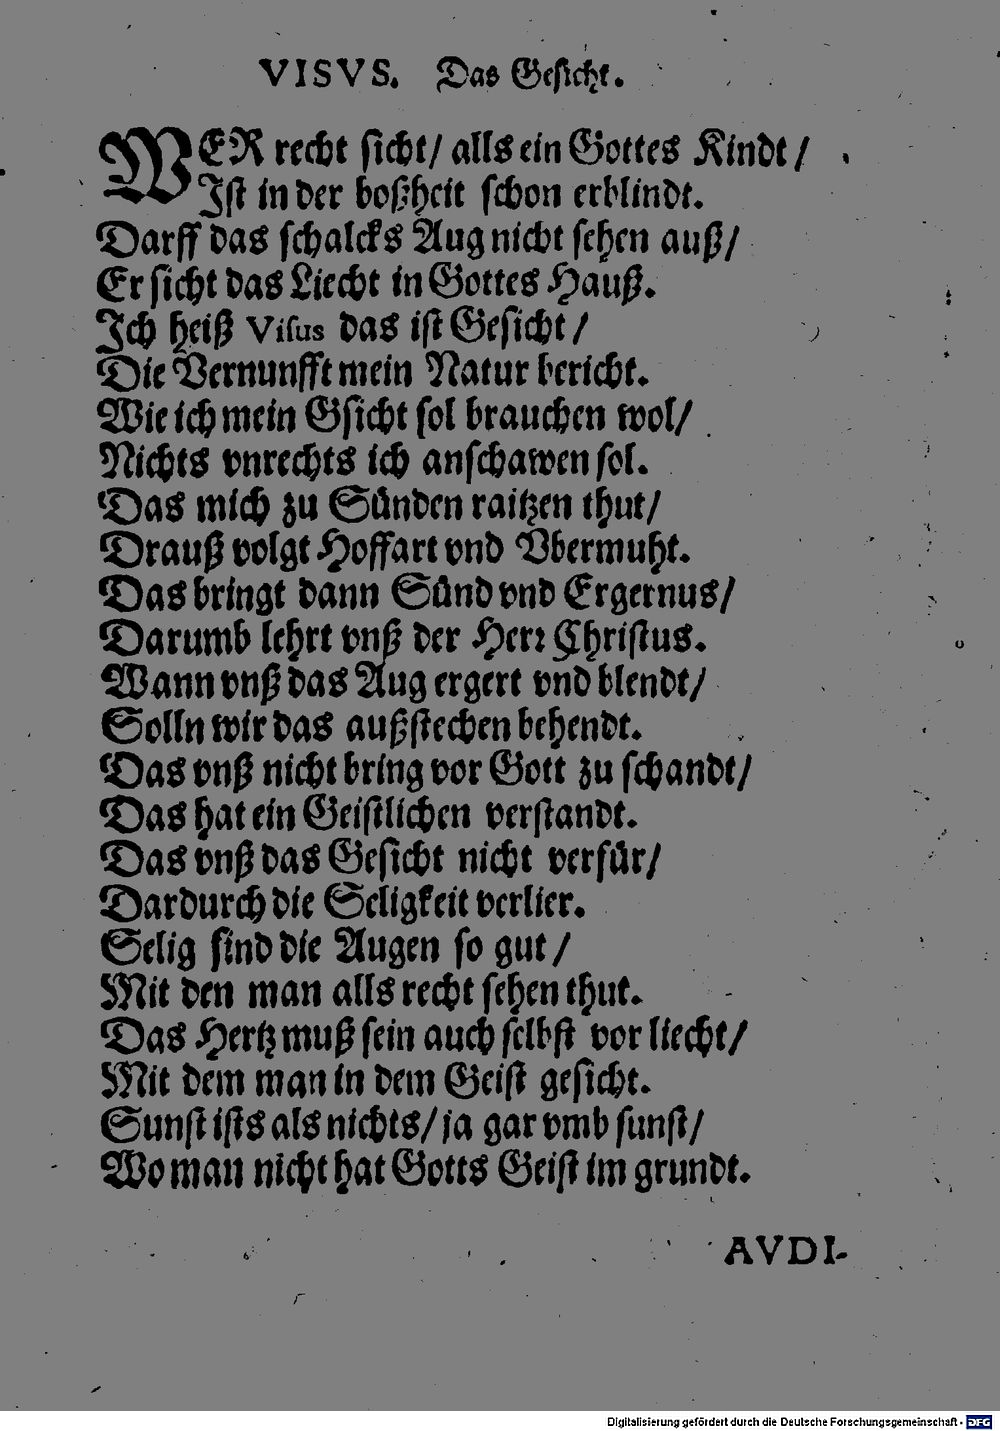 VISVS. Das Gesicht.
WER recht sicht/ alls ein Gottes Kindt/
Ist in der boßheit schon erblindt.
Darff das schalcks Aug nicht sehen auß/
Er sicht das Liecht in Gottes Hauß.
Ich heiß Visus das ist Gesicht/
Die Vernunfft mein Natur bericht.
Wie ich mein Gsicht sol brauchen wol/
Nichts vnrechts ich anschawen sol.
Das mich zu Sünden raitzen thut/
Drauß volgt Hoffart vnd Vbermuht.
Das bringt dann Sünd vnd Ergernus/
Darumb lehrt vnß der Herr Christus.
Wann vnß das Aug ergert vnd blendt/
Solln wir das außstechen behendt.
Das vnß nicht bring vor Gott zu schandt/
Das hat ein Geistlichen verstandt.
Das vnß das Gesicht nicht verfür/
Dardurch die Seligkeit verlier.
Selig sind die Augen so gut/
Mit den man alls recht sehen thut.
Das Hertz muß sein auch selbst vor liecht/
Mit dem man in dem Geist gesicht.
Sunst ists als nichts/ ja gar vmb sunst/
Wo man nicht hat Gotts Geist im grundt.
AVDI-
Digitalisierung gefördert durch die Deutsche Forschungsgemeinschaft - DFG